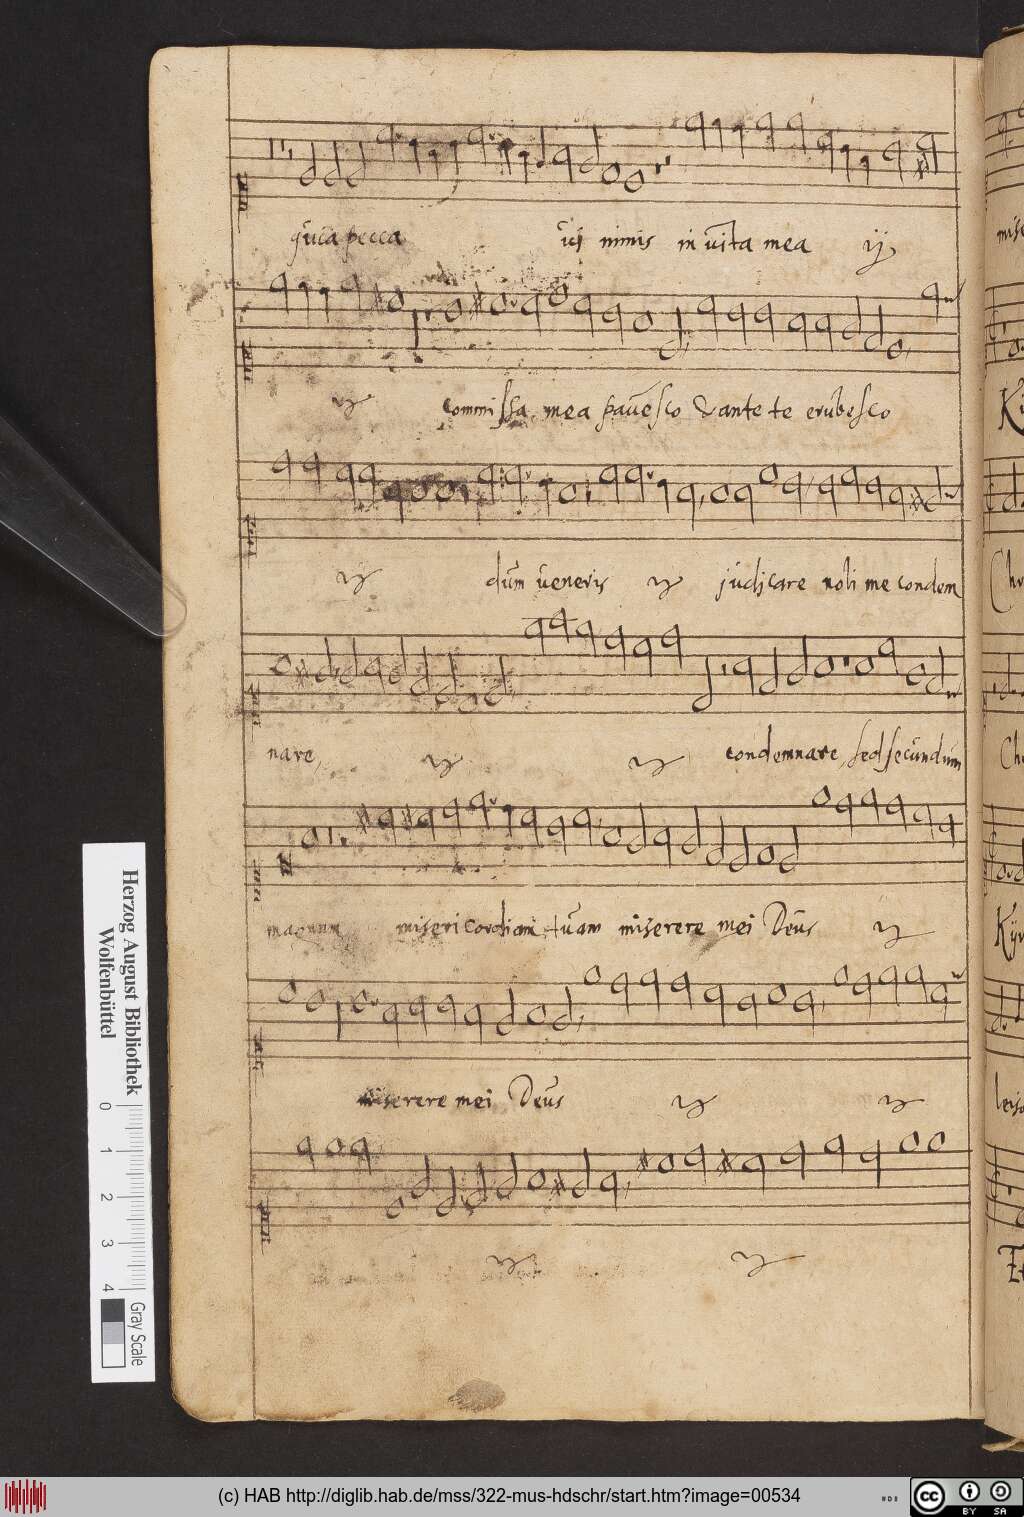 quia pecca ui nimis in uita mea ij
ij commissa mea pauesco & ante te erubesco
ij dum ueneris ij judicare noli me condem
nare, ij ij condemnare, sed secundum
magnam misericordiam tuam miserere mei Deus ij
miserere mei Deus ij ij
ij ij
Herzog August Bibliothek
Wolfenbüttel
0 1 2 3 4
Gray Scale
(c) HAB http://diglib.hab.de/mss/322-mus-hdschr/start.htm?image=00534
cc BY SA